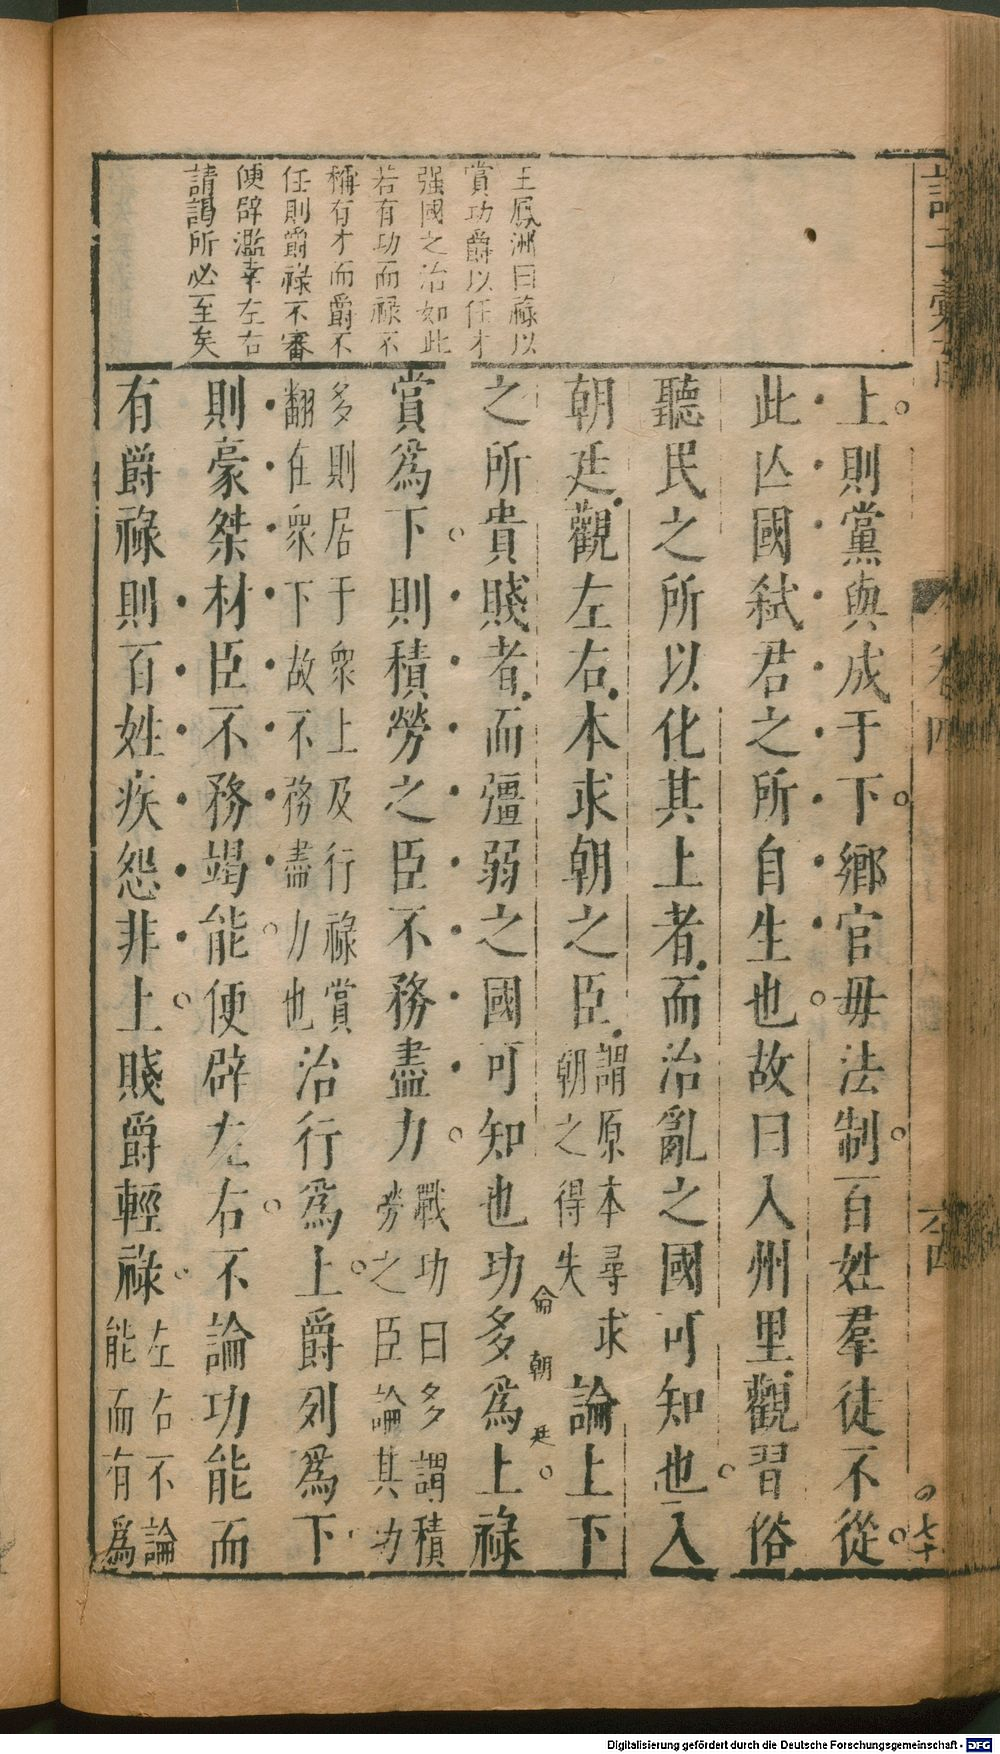 王鳳洲曰祿以
賞功爵以任才
强國之治如此
若有功而祿不
稱有才而爵不
任則爵祿不審
便辟濫幸左右
請謁所必至矣
上則黨與成于下鄉官毋法制百姓羣徒不從
此亾國弑君之所自生也故曰入州里觀習俗
聽民之所以化其上者而治亂之國可知也入
朝廷觀左右本求朝之臣謂原本尋求朝之得失論上下
之所貴賤者而彊弱之國可知也功多爲上祿
侖朝廷
賞爲下則積勞之臣不務盡力戰功曰多謂積勞之臣論其功
多則居于衆上及行祿賞翻在衆下故不務盡力也治行爲上爵列爲下
則豪桀材臣不務竭能便辟左右不論功能而
有爵祿則百姓疾怨非上賤爵輕祿左右不論能而有爲
卷四
七十
Digitalisierung gefördert durch die Deutsche Forschungsgemeinschaft - DFG